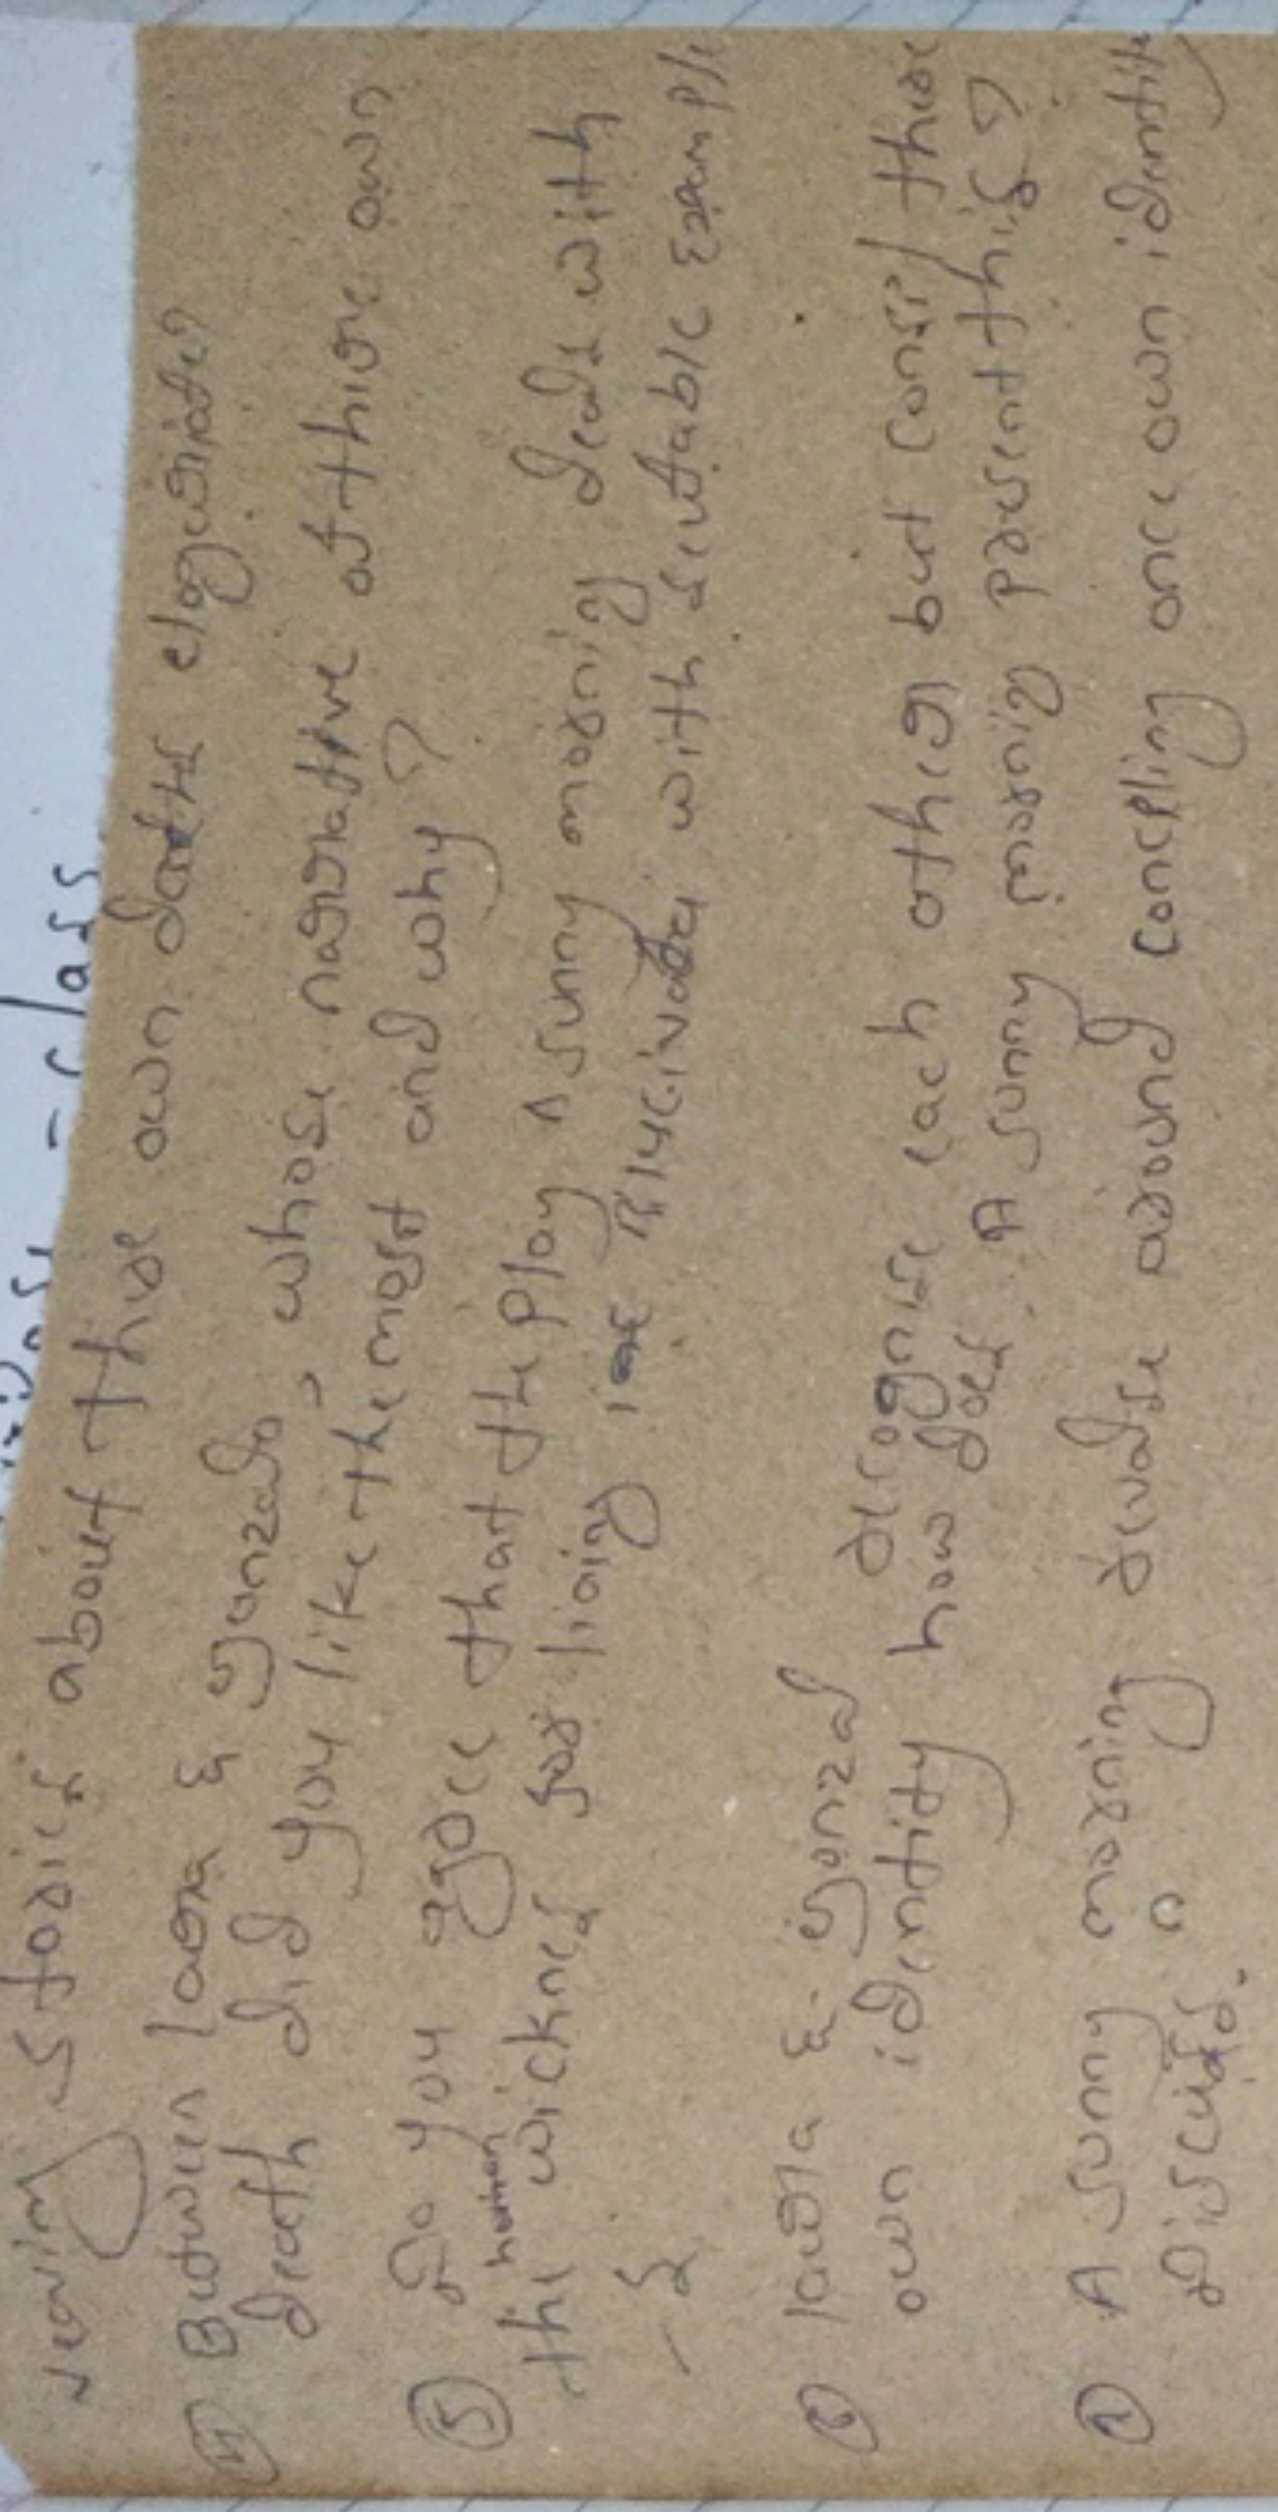 stories about thir own deaths elogurate?
④ Between laura & gonzalo, whose narrative of their own
death did you like the most and why?
⑤ Do you agree that the play A sunny morning deals with
the human wickness for lioing with suitable exampl
- s
⑥ laura & gonzal recognise each other but consil their
own identity how does A sunny morning parsent this?
⑦ A sunny morning revalse around concpling once own identity
Discuss.